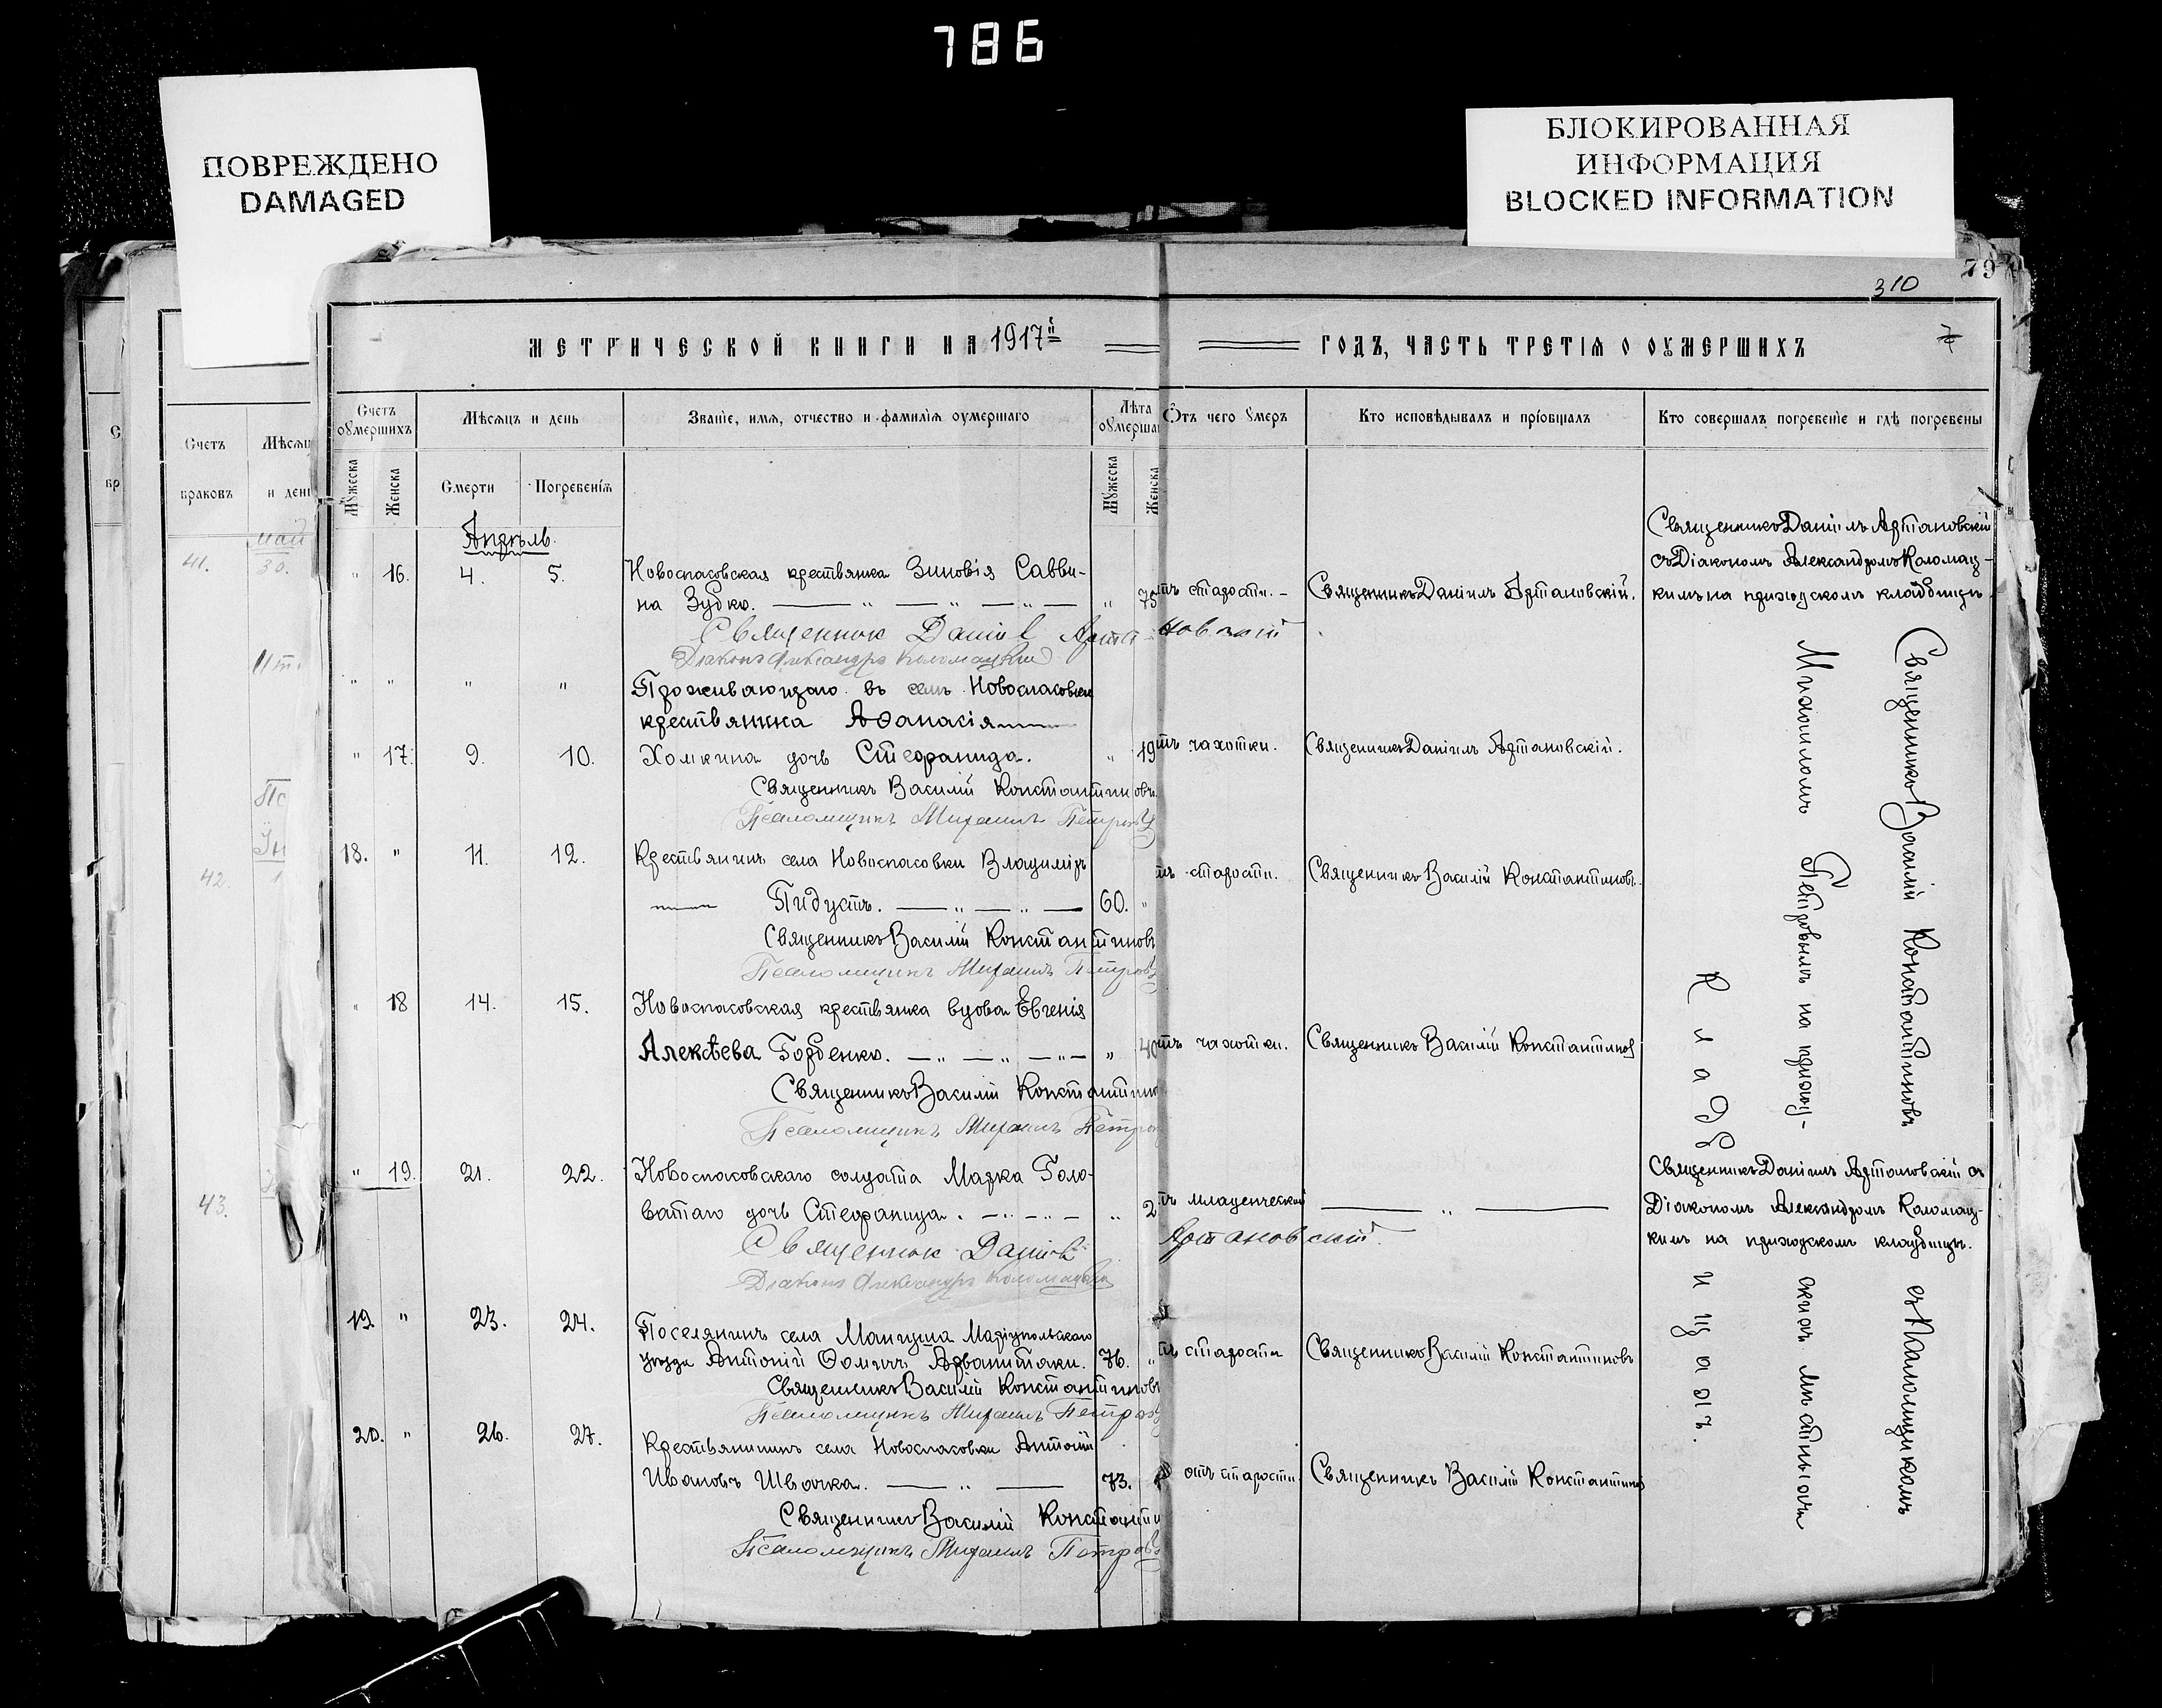 786
ПОВРЕЖДЕНО
DAMAGED
БЛОКИРОВАННАЯ
ИНФОРМАЦИЯ
BLOCKED INFORMATION
310
79
7
МЕТРИЧЕСКОЙ КНИГИ НА 1917й
ГОДЪ, ЧАСТЬ ТРЕТІЯ О ОУМЕРШИХЪ
Счетъ
браковъ
и день
41.
май
30.
42.
1
43.
Счетъ
оумершихъ
Мѣсяцъ и день
Званіе, имя, отчество и фамилія оумершаго
Лѣта
Отъ чего умеръ
Кто исповѣдывалъ и пріобщалъ
Кто совершалъ погребеніе и гдѣ погребены
Мужеска
Женска
Смерти
Погребенія
Мужеска
Женска
Апрѣль
" 16. 4. 5. Новоспасовская крестьянка Зиновія Савви-
на Зубко. " 75 отъ старости. Священникъ Даніилъ Артановскій.
Священникъ Даніилъ Артановскій
съ Діакономъ Александромъ Коломац-
кимъ на приходскомъ кладбищѣ.
Священник Даниіл Артановский
Діаконъ Александръ Коломацкій
" " " " Проживающаго въ селѣ Новоспасовки
крестьянина Аѳанасія
" 17. 9. 10. Хомкина дочь Стефанида. " 19 отъ чахотки. Священникъ Даніилъ Артановскій.
Священникъ Василій Константиновъ.
Псаломщикъ Михаилъ Петровъ
18. " 11. 12. Крестьянинъ села Новоспасовки Владиміръ
Пидустъ. 60. " отъ старости. Священникъ Василій Константиновъ.
Священникъ Василій Константиновъ
Псаломщикъ Михаилъ Петровъ
" 18 14. 15. Новоспасовская крестьянка вдова Евгенія
Алексѣева Горбенко. " 40 отъ чахотки. Священникъ Василій Константинов
Священникъ Василій Константино
Псаломщикъ Михаилъ Петров
" 19. 21. 22. Новоспасовскаго солдата Марка Голо-
ватаго дочь Стефанида. " 2. отъ младенческой
Священникъ Даніилъ Артановскій съ
Діакономъ Александромъ Коломац-
кимъ на приходскомъ кладбищѣ.
Священник Даниіл Артановский.
Діаконъ Александръ Коломацкій
19. " 23. 24. Поселянинъ села Мангуша Маріупольскаго
уѣзда Антоній Ѳомичъ Арванитаки. 76. " отъ старости Священникъ Василій Константиновъ
Священникъ Василій Константиновъ
Псаломщикъ Михаилъ Петровъ
20. " 26. 27. Крестьянинъ села Новоспасовки Антоній
Ивановъ Швачка. 73. отъ старости. Священникъ Василій Константинов
Священникъ Василій Константин
Псаломщикъ Михаилъ Петровъ
Священникъ Василій Константиновъ съ Псаломщикомъ
Михаиломъ Петровымъ на приход-
скихъ мѣстныхъ
Кладбищахъ.